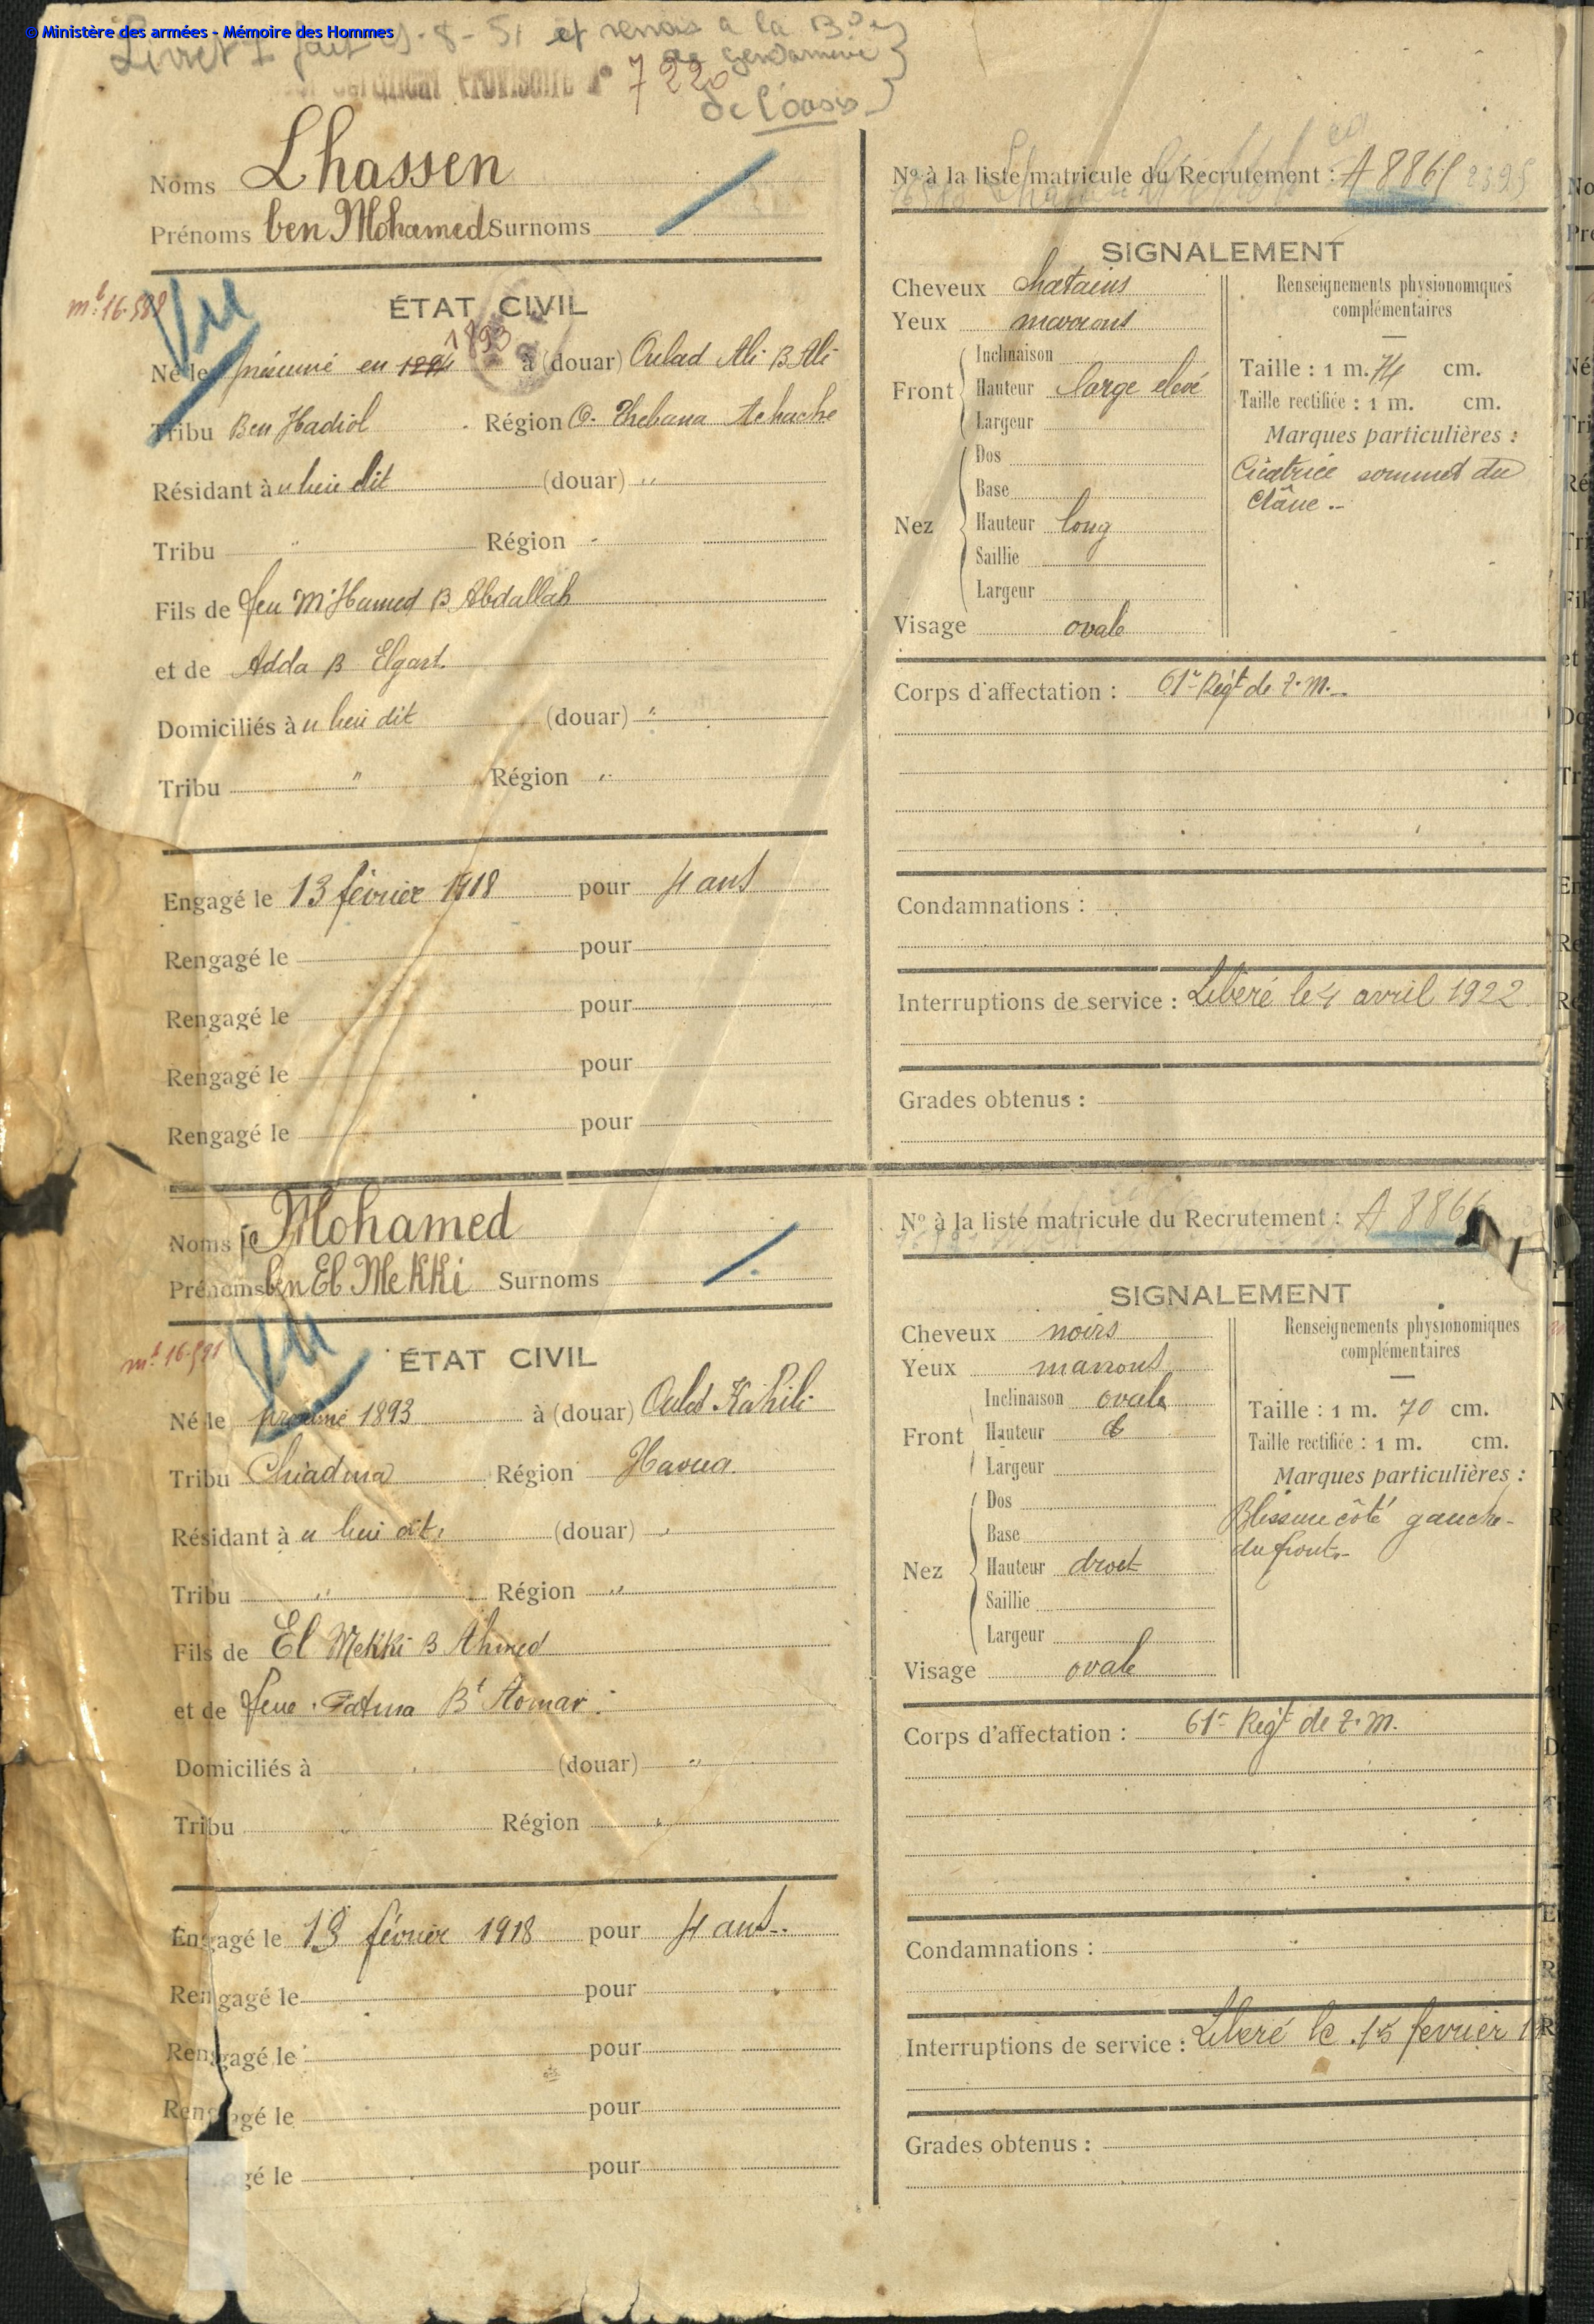 © Ministère des armées - Mémoire des Hommes
Livret fait 8-51 et renvoi à la
de gendarmerie
Certificat Provisoire N° 7220
de l'oasis
Noms Lhassen
Prénoms ben Mohamed Surnoms
ÉTAT CIVIL
Né le présumé en 1894 1893 à (douar) Oulad Ali B Ali
Tribu Ben Hadiol Région O. Achache
Résidant à u lieu dit (douar) "
Tribu " Région "
Fils de feu M'Hamed B Abdallah
et de Adda B
Domiciliés à u lieu dit (douar) "
Tribu " Région "
Engagé le 13 février 1918 pour 4 ans
Rengagé le pour
Rengagé le pour
Rengagé le pour
Rengagé le pour
N° à la liste matricule du Recrutement : A 8865
SIGNALEMENT
Cheveux chatains
Yeux marrons
Front
Inclinaison
Hauteur large elevé
Largeur
Nez
Dos
Base
Hauteur long
Saillie
Largeur
Visage ovale
Renseignements physionomiques
complémentaires
Taille : 1 m. 74 cm.
Taille rectifiée : 1 m. cm.
Marques particulières :
Cicatrice sommet du
crâne.-
Corps d'affectation : 61e Régt de T. M.
Condamnations :
Interruptions de service : Libéré le 4 avril 1922
Grades obtenus :
Noms Mohamed
Prénoms ben El Mekki Surnoms
ÉTAT CIVIL
Né le présumé 1893 à (douar) Ouled Kahili
Tribu Chiadma Région Haoua
Résidant à u lieu dit (douar) "
Tribu " Région "
Fils de El Mekki B Ahmed
et de feue Fatma Bt Aomar
Domiciliés à (douar) "
Tribu " Région "
Engagé le 13 février 1918 pour 4 ans
Rengagé le pour
Rengagé le pour
Rengagé le pour
gé le pour
N° à la liste matricule du Recrutement : A 8866
SIGNALEMENT
Cheveux noirs
Yeux marrons
Front
Inclinaison ovale
Hauteur
Largeur
Nez
Dos
Base
Hauteur droit
Saillie
Largeur
Visage ovale
Renseignements physionomiques
complémentaires
Taille : 1 m. 70 cm.
Taille rectifiée : 1 m. cm.
Marques particulières :
Blessure côté gauche
du front
Corps d'affectation : 61e Régt de T. M.
Condamnations :
Interruptions de service : Libéré le 15 fevrier
Grades obtenus :